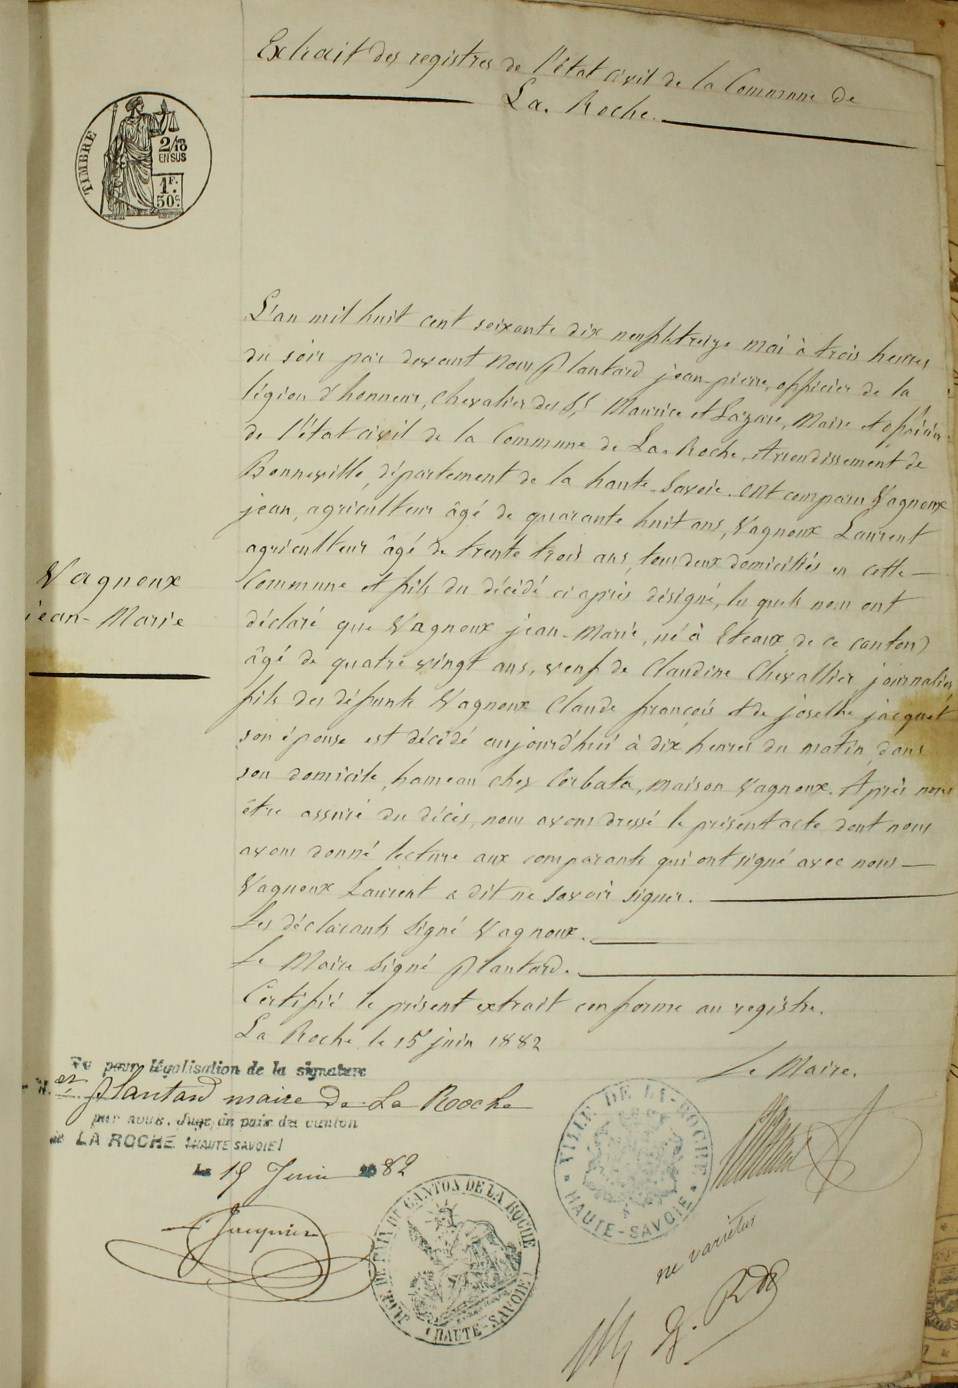 Extrait des registres de l'état civil de la Commune de
La Roche.
TIMBRE
2/10
EN SUS
1F.
50c
L'an mil huit cent soixante dix neuf & treize mai à trois heures
du soir par devant Nous Plantard jean-pierre, officier de la
légion d'honneur, Chevalier des Sts Maurice et Lazare, Maire et officier
de l'état civil de la Commune de La Roche, Arrondissement de
Bonneville, département de la haute-Savoie. Ont comparu Vagnoux
jean, agriculteur âgé de quarante huit ans, Vagnoux Laurent
agriculteur âgé de trente trois ans, tous deux domiciliés en cette
Commune et fils du décédé ci après désigné, les quels nous ont
déclaré que Vagnoux jean-Marie, né à Eteaux, de ce canton
âgé de quatre vingt ans, veuf de Claudine Chevallier, journalier
fils des défunts Vagnoux Claude françois et de josethe jacquet
son épouse est décédé aujourd'hui à dix heures du matin, dans
son domicile, hameau chez Corbata, maison Vagnoux. Après nous
être assuré du décès, nous avons dressé le présent acte dont nous
avons donné lecture aux comparants qui ont signé avec nous
Vagnoux Laurent a dit ne savoir signer.
Les déclarants signé Vagnoux.
Le Maire signé Plantard.
Certifié le présent extrait conforme au registre.
La Roche le 15 juin 1882
Le Maire.
Vagnoux
jean-Marie
Vu pour légalisation de la signature
de M. Plantard maire de La Roche
par nous, Juge de paix du canton
de LA ROCHE (HAUTE SAVOIE)
Le 15 Juin 1882
JUGE DE PAIX DU CANTON DE LA ROCHE
(HAUTE-SAVOIE)
VILLE DE LA-ROCHE
HAUTE-SAVOIE
ne varietur